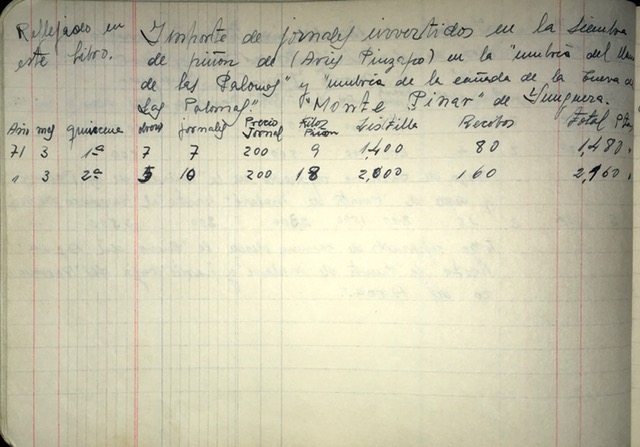 Reflejado en
este libro.
Importe de jornales invertidos en la Siembra
de piñón de (Avies Pinzapo) en la "umbría del
de las Palomas" y "umbría de la cañada de la Cueva de
Las Palomas" "Monte Pinar" de Yunquera.
Año mes quincena jornales Precio Jornal Kilos Piñon Recibos Total Ptas
71 3 1ª 7 7 200 9 1,400 80 1,480.
" 3 2ª 5 10 200 18 2,000 160 2,160.